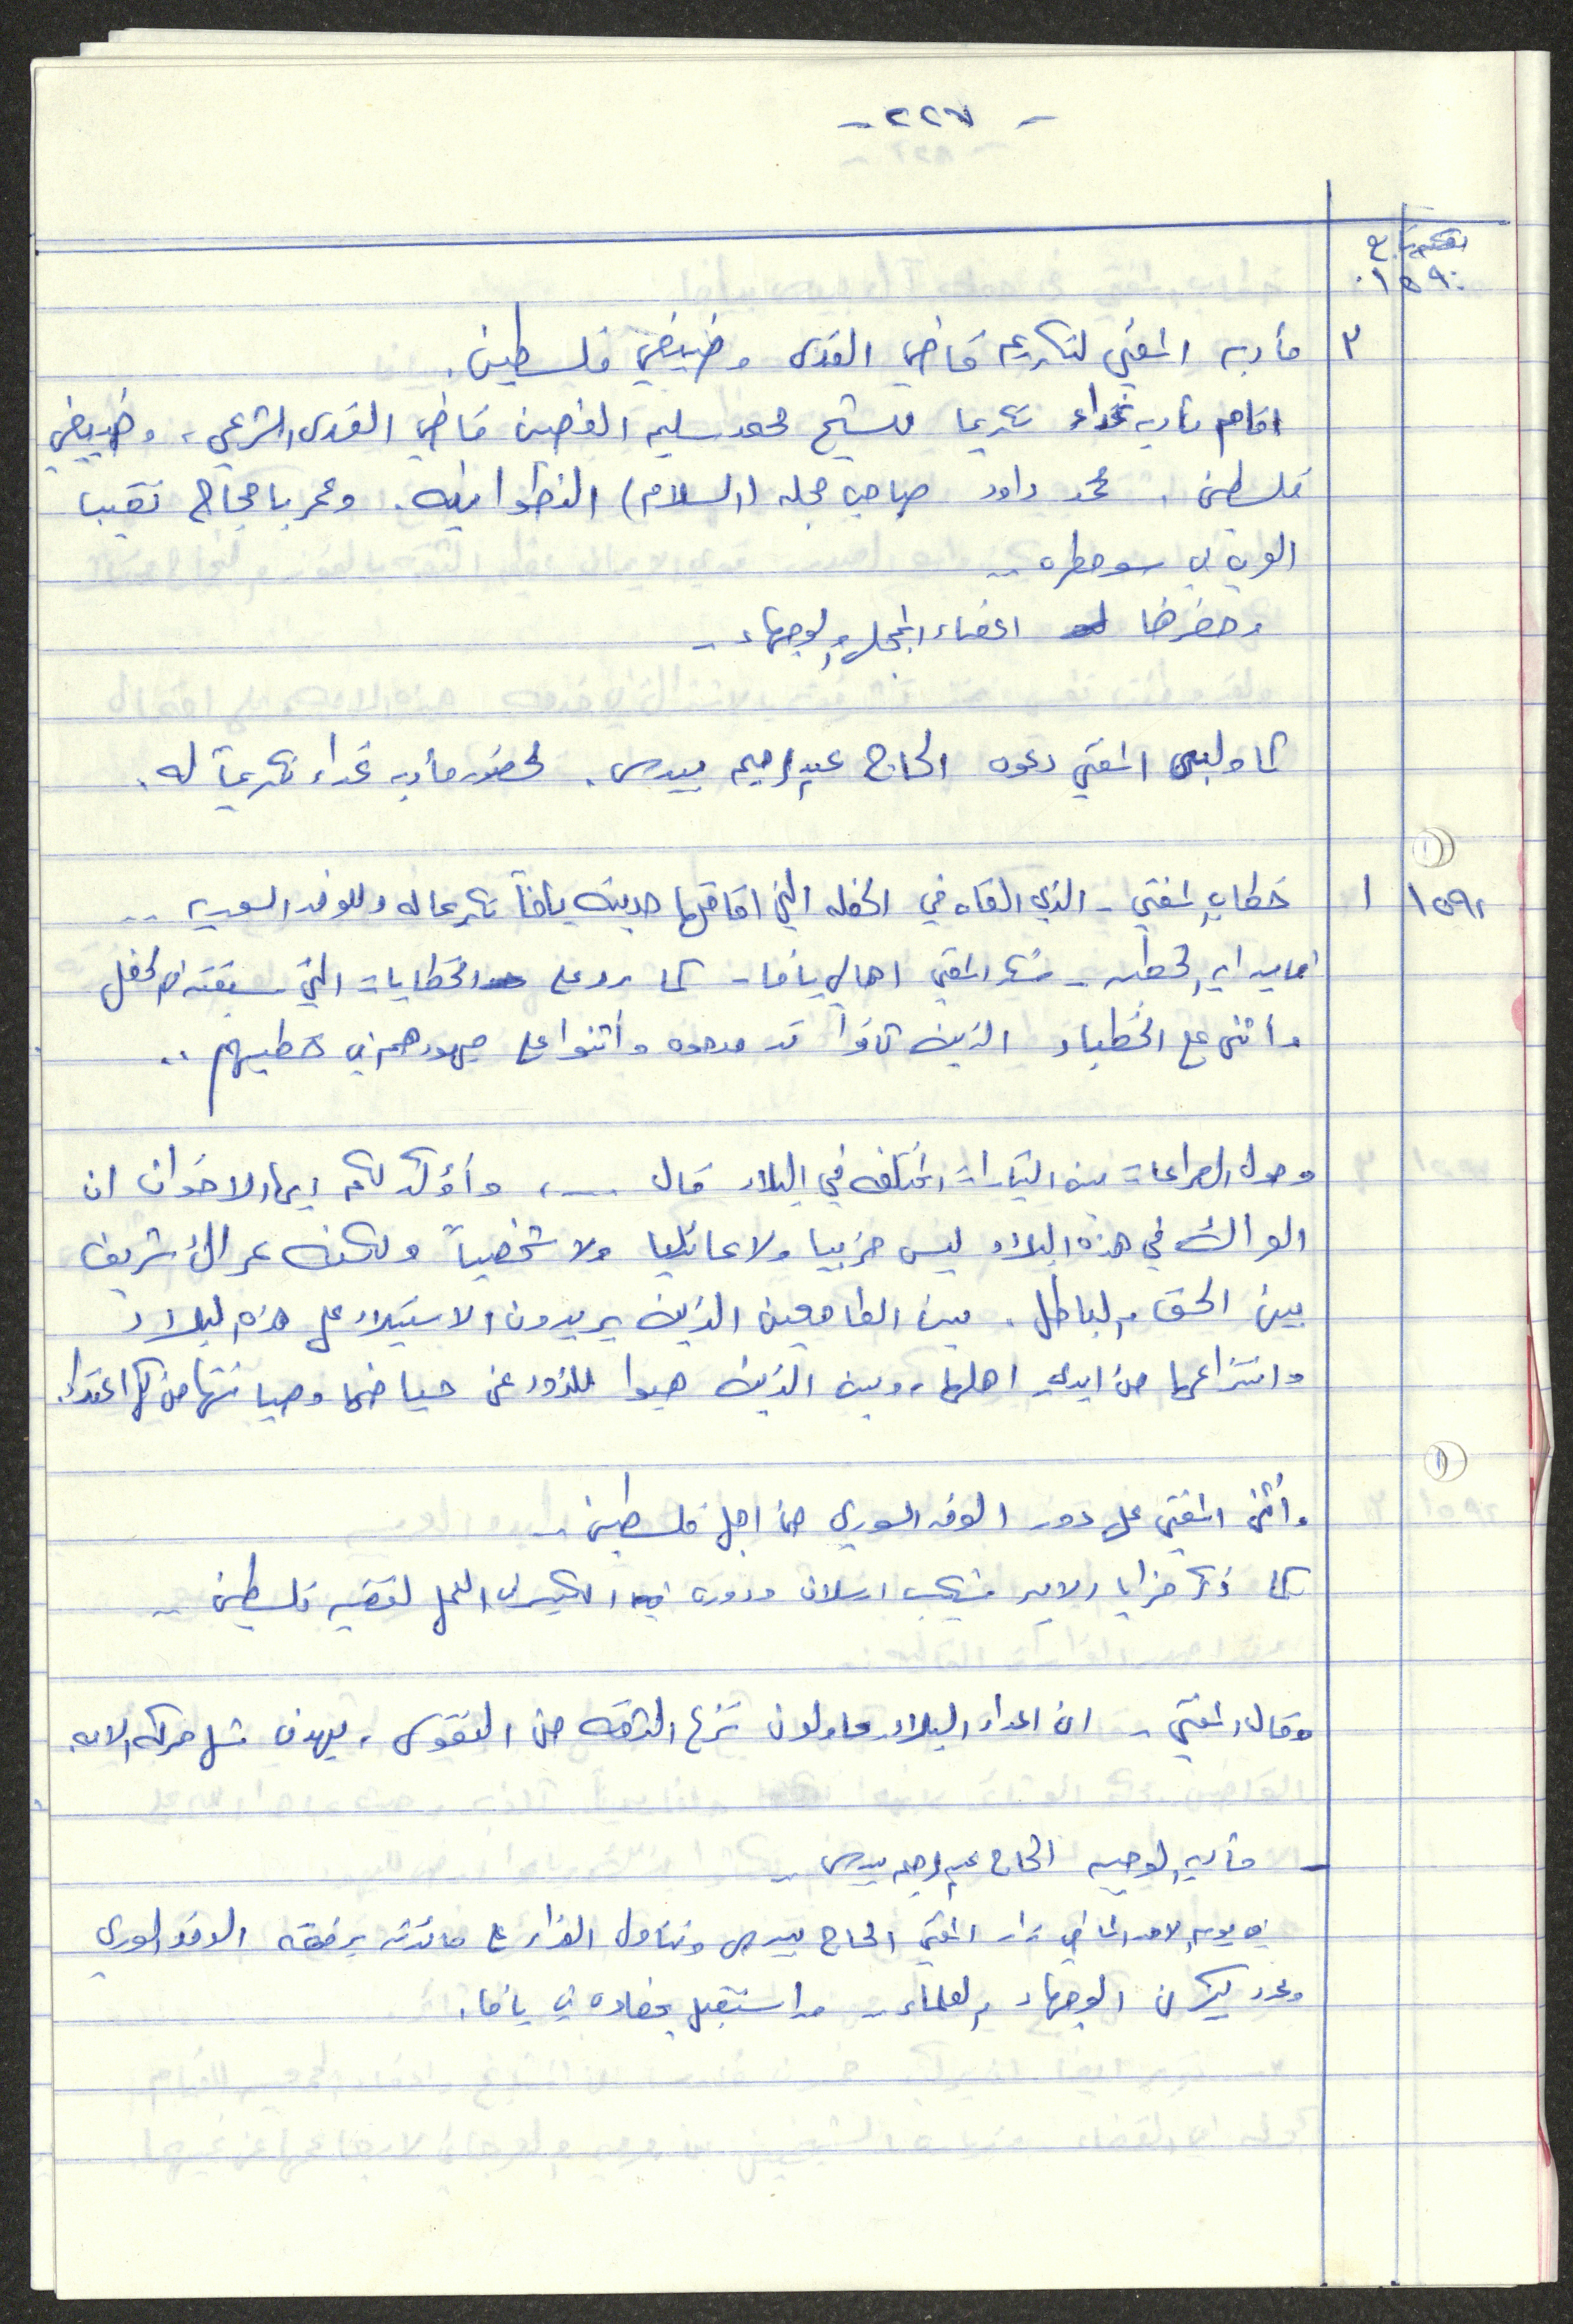 - ٢٢٧ -
١٥٩٠
٣ مأدبه المفتي لتكريم قاضي القدس وضيفي فلسطين.
اقام مأدبه غداء تكريما للشيخ محمد سليم قاضي القدس الشرعي، وضيفي
فلسطين محمد داود صاحب مجله (السلام) وعمر باحجاج نقيب
العرب في سومطره ..
وحضرها اعضاء المجلس والوجهاء ..
كما ولبى المفتي دعوه الحاج عبد الرحيم بيدس. لحضور مأدبه غداء تكريماً له.
(١)
١٥٩٢ ١ خطاب المفتي - الذي القاه في الحفله التي اقامتها مدينه يافا تكريما له وللوفد السوري ..
شكر المفتي اهالي يافا - كما رد على الخطابات التي سبقته في الحفل
وأثنى على الخطباء الذين كانوا قد مدحوه وأثنوا على جهودهم في خطبهم ..
وحول الصراعات بين التيارات المختلفه في البلاد قال ...، وأؤكد لكم ايها الاخوان ان
العراك في هذه البلاد ليس حزبيا ولا عائليا ولا شخصياً ولكنه عراك شريف
بين الحق والباطل. بين الطامعين الذين يريدون الاستيلاء على هذه البلاد
وانتزاعها من ايدي اهلها، وبين الذين هبوا للذود عن حياضها وصيانتها من كل اعتداء.
(١)
وأثنى المفتي على دور الوفد السوري من اجل فلسطين ..
كما ذكر مزايا الامير شكيب ارسلان ودوره الكبير في العمل لقضيه فلسطين ..
وقال المفتي .. ان اعداء البلاد يحاولون نزع الثقه من النفوس، بهدف شل حركه الامه.
- مأدبه الوجيه الحاج عبد الرحيم بيدس ..
في يوم الاحد الماضي زار المفتي الحاج بيدس وتناول الغداء على مائدته برفقه الوفد السوري
وعدد كبير من الوجهاء والعلماء .. واستقبل بحفاوه في يافا.